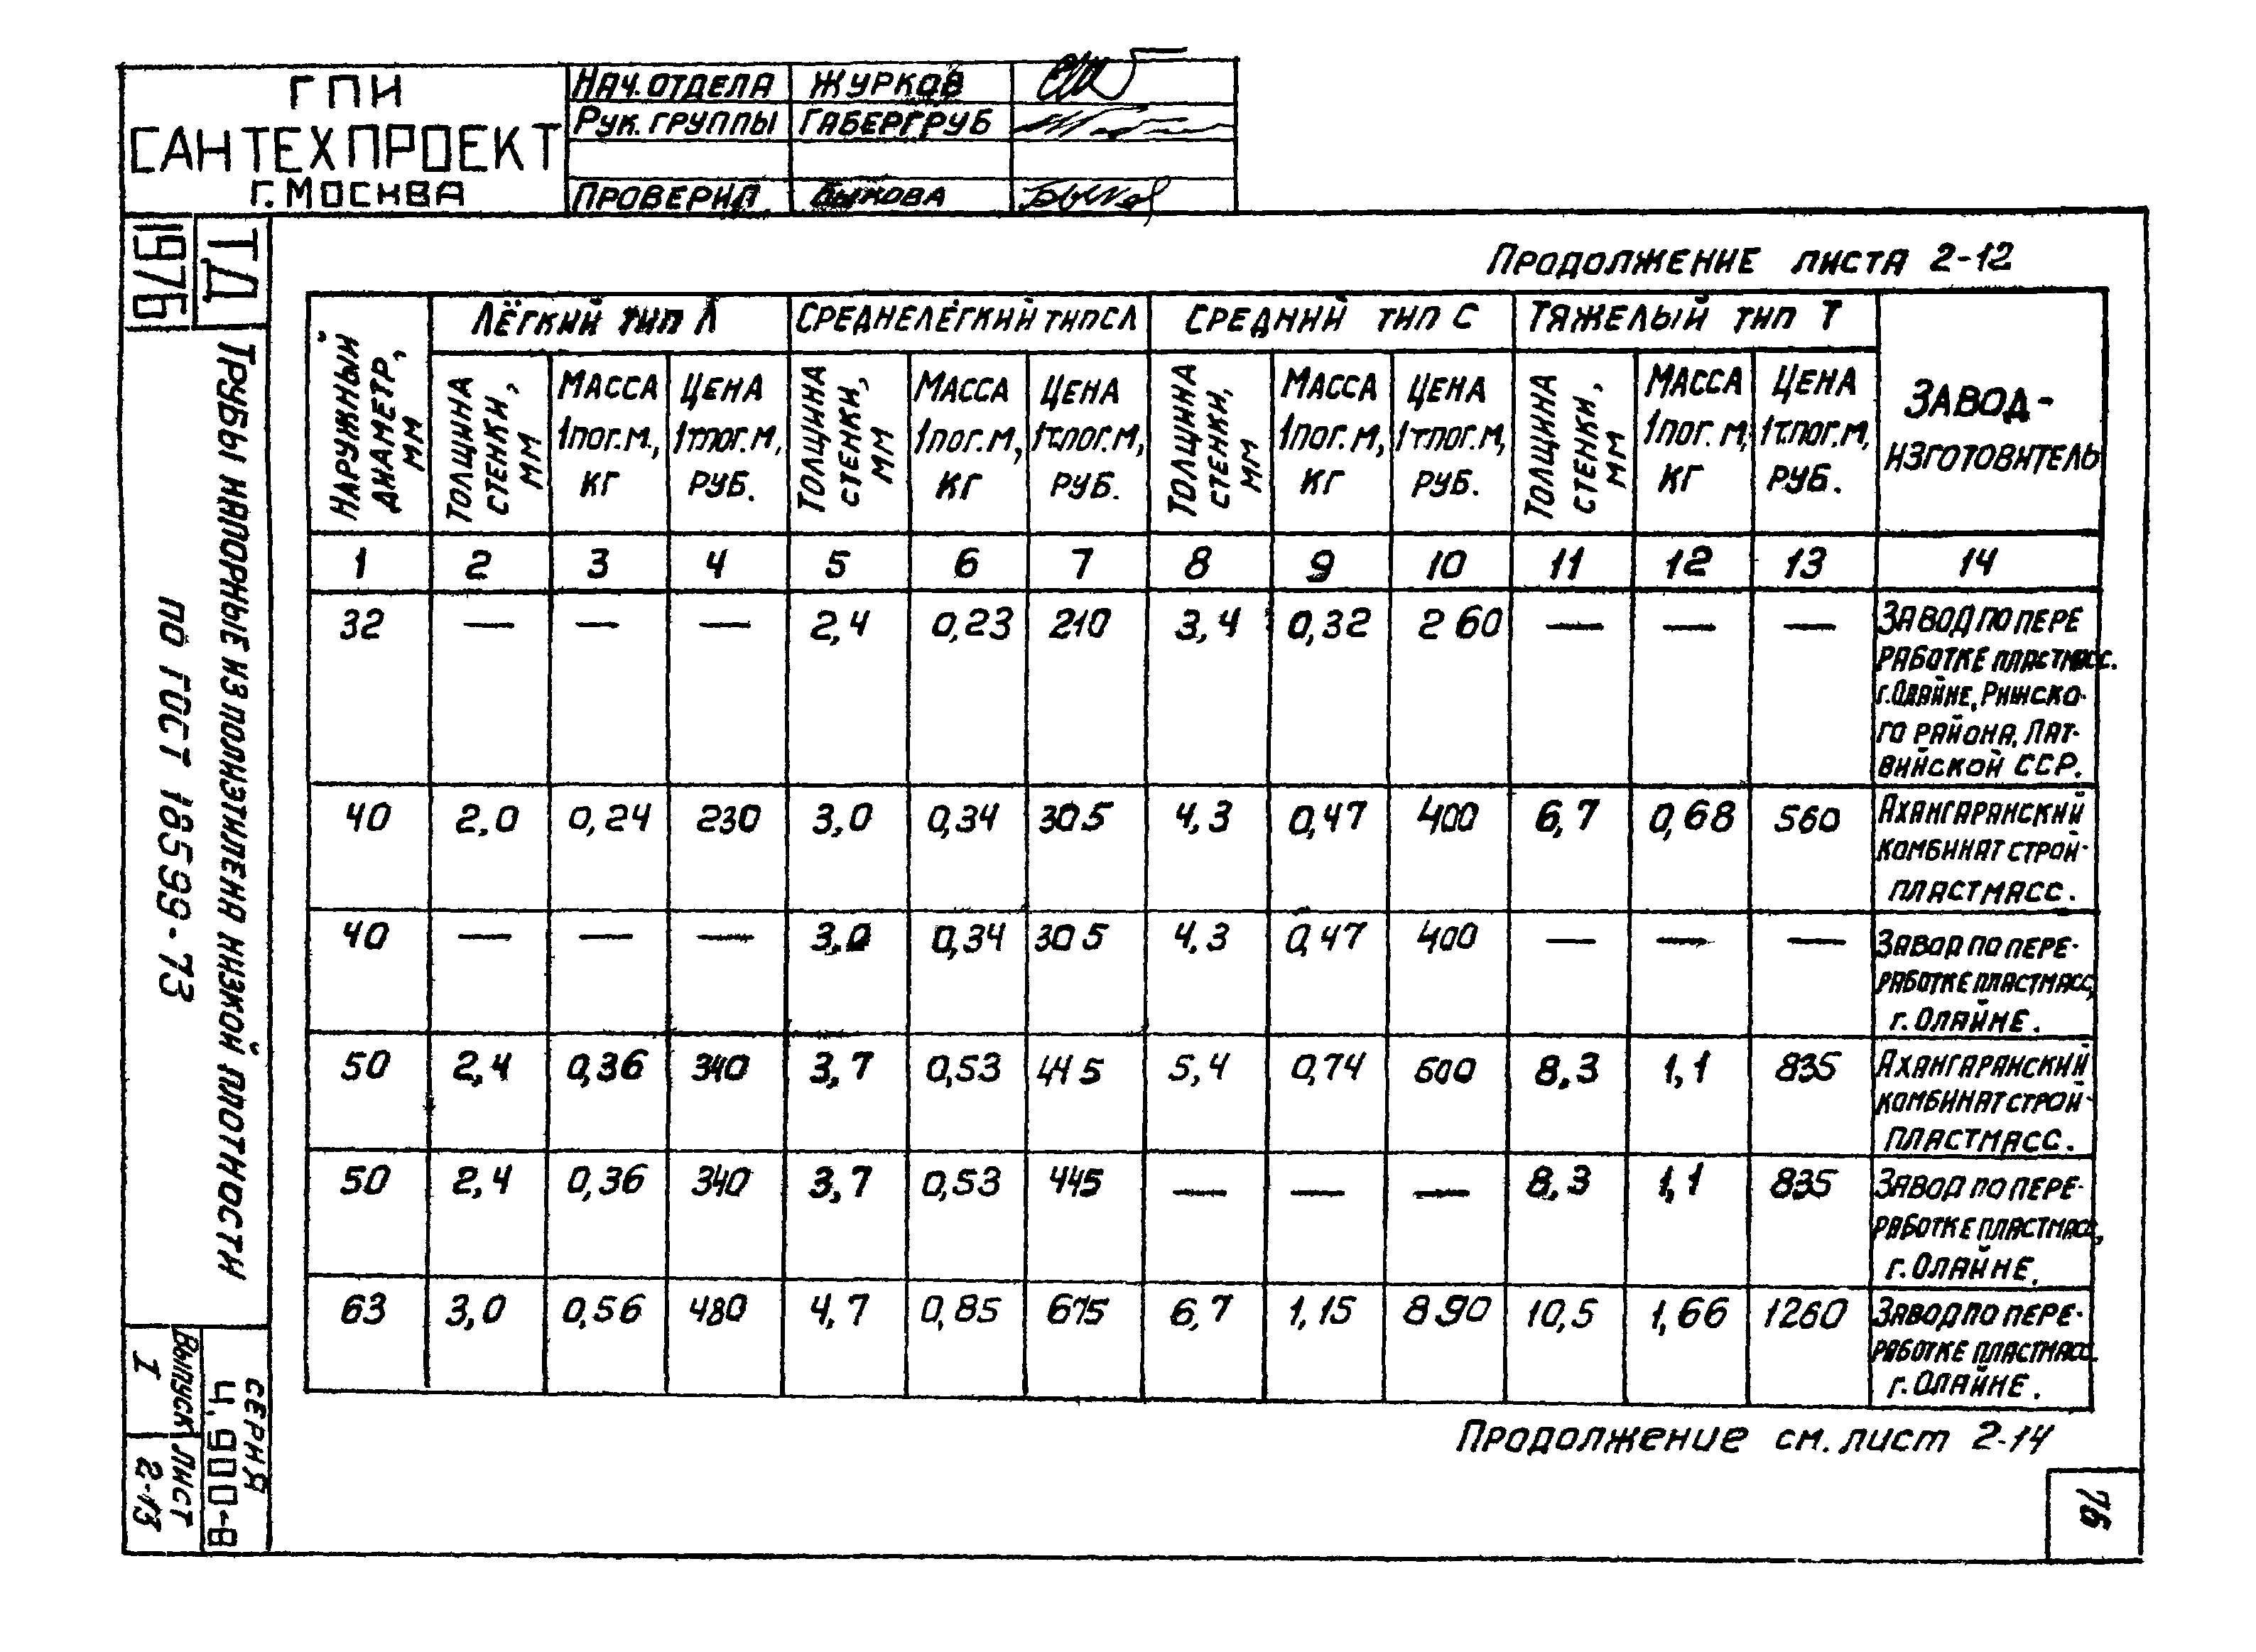 ГПИ
САНТЕХПРОЕКТ
г. МОСКВА
НАЧ. ОТДЕЛА ЖУРКОВ
РУК. ГРУППЫ ГАБЕРГРУБ
ПРОВЕРИЛ БЫКОВА
ТД
1976
ТРУБЫ НАПОРНЫЕ ИЗ ПОЛИЭТИЛЕНА НИЗКОЙ ПЛОТНОСТИ
ПО ГОСТ 18599-73
СЕРИЯ
4.900-8
ВЫПУСК ЛИСТ
I 2-13
ПРОДОЛЖЕНИЕ ЛИСТА 2-12
НАРУЖНЫЙ ДИАМЕТР, ММ
ЛЁГКИЙ ТИП Л СРЕДНЕЛЁГКИЙ ТИП СЛ СРЕДНИЙ ТИП С ТЯЖЕЛЫЙ ТИП Т
ТОЛЩИНА СТЕНКИ, ММ
МАССА 1 ПОГ. М, КГ
ЦЕНА 1 Т.ПОГ. М, РУБ.
ТОЛЩИНА СТЕНКИ, ММ
МАССА 1 ПОГ. М, КГ
ЦЕНА 1 Т.ПОГ. М, РУБ.
ТОЛЩИНА СТЕНКИ, ММ
МАССА 1 ПОГ. М, КГ
ЦЕНА 1 Т.ПОГ. М, РУБ.
ТОЛЩИНА СТЕНКИ, ММ
МАССА 1 ПОГ. М, КГ
ЦЕНА 1 Т.ПОГ. М, РУБ.
ЗАВОД-
ИЗГОТОВИТЕЛЬ
1 2 3 4 5 6 7 8 9 10 11 12 13 14
32 — — — 2,4 0,23 210 3,4 0,32 260 — — — ЗАВОД ПО ПЕРЕ
РАБОТКЕ ПЛАСТМАСС.
г. ОЛАЙНЕ, РИЖСКО-
ГО РАЙОНА, ЛАТ-
ВИЙСКОЙ ССР.
40 2,0 0,24 230 3,0 0,34 305 4,3 0,47 400 6,7 0,68 560 АХАНГАРАНСКИЙ
КОМБИНАТ СТРОЙ-
ПЛАСТМАСС.
40 — — — 3,0 0,34 305 4,3 0,47 400 — — — ЗАВОД ПО ПЕРЕ-
РАБОТКЕ ПЛАСТМАСС,
г. ОЛАЙНЕ.
50 2,4 0,36 340 3,7 0,53 445 5,4 0,74 600 8,3 1,1 835 АХАНГАРАНСКИЙ
КОМБИНАТ СТРОЙ-
ПЛАСТМАСС.
50 2,4 0,36 340 3,7 0,53 445 — — — 8,3 1,1 835 ЗАВОД ПО ПЕРЕ-
РАБОТКЕ ПЛАСТМАСС,
г. ОЛАЙНЕ.
63 3,0 0,56 480 4,7 0,85 675 6,7 1,15 890 10,5 1,66 1260 ЗАВОД ПО ПЕРЕ-
РАБОТКЕ ПЛАСТМАСС.
г. ОЛАЙНЕ.
ПРОДОЛЖЕНИЕ СМ. ЛИСТ 2-14
76